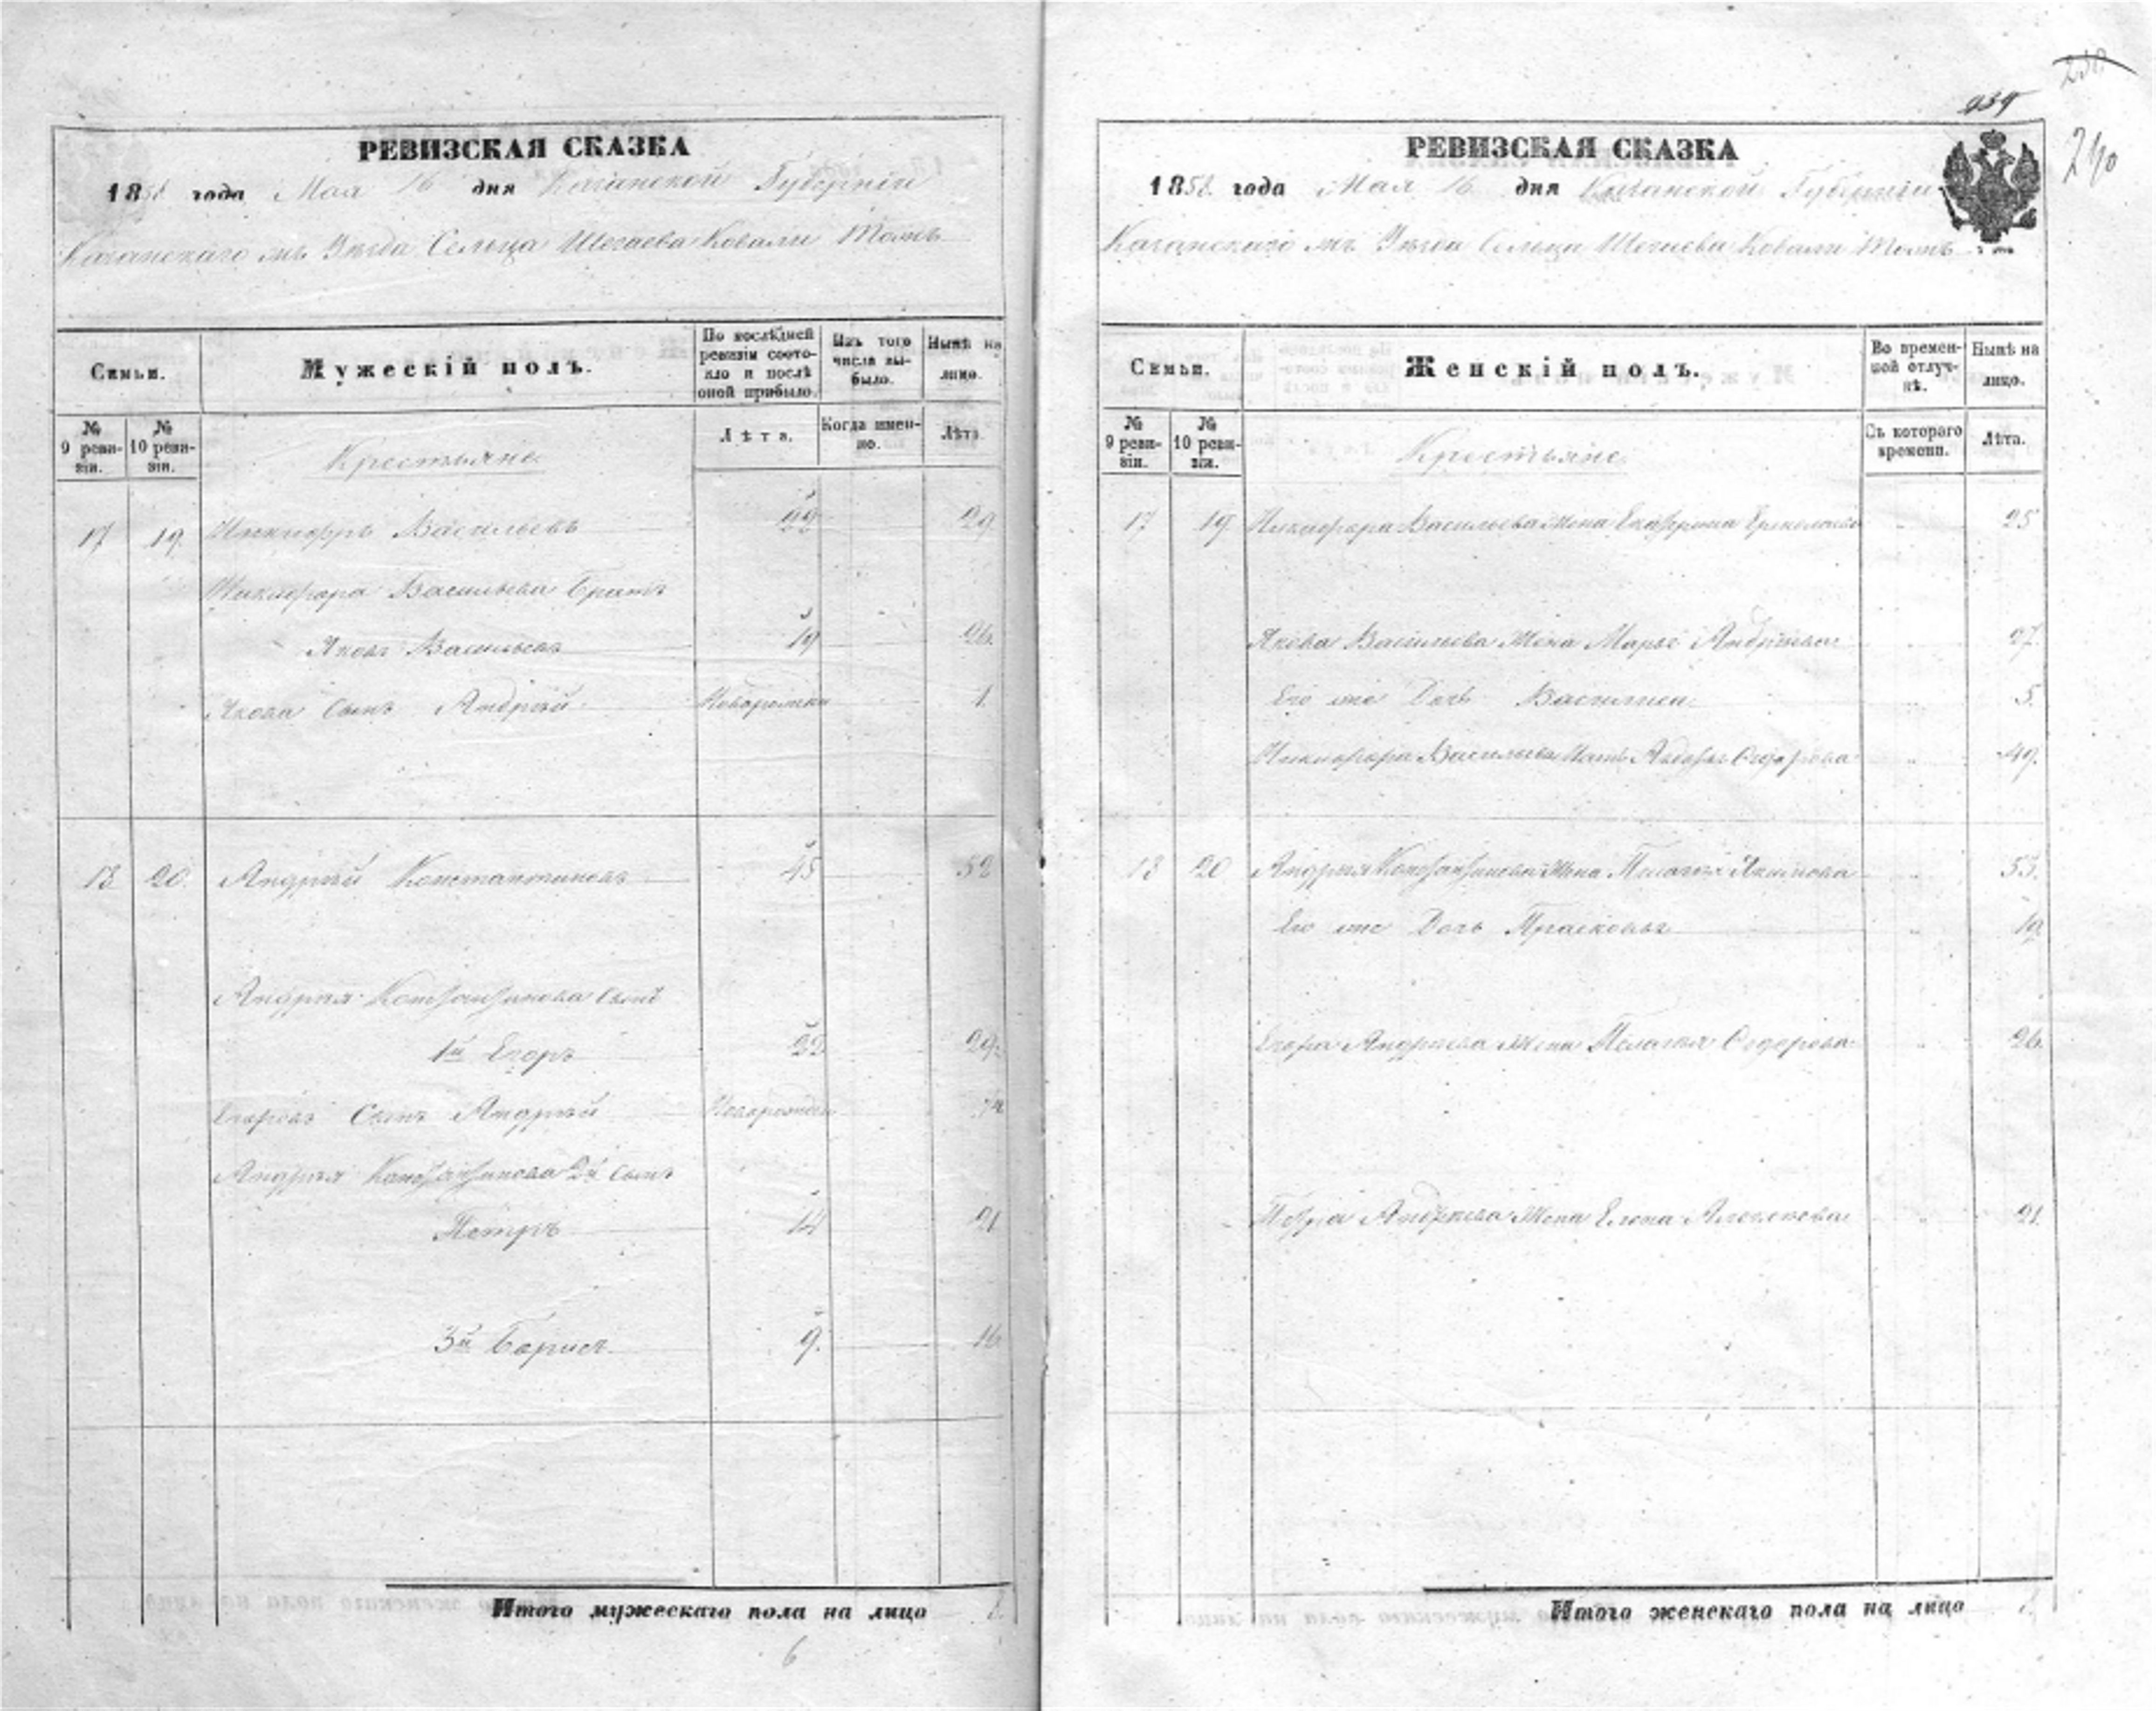 РЕВИЗСКАЯ СКАЗКА
1858 года Мая 16 дня Казанской Губернiи
Казанскаго Уѣзда Сельца Ковали тожъ
Семьи.
Мужескiй полъ.
По послѣдней ревизiи состояло и послѣ оной прибыло.
Изъ того числа выбыло.
Нынѣ на лицо.
№ 9 ревизiи.
№ 10 ревизiи.
Крестьяне
Лѣта.
Когда именно.
Лѣта.
17 19. Никифоръ Васильевъ 22 29
Никифора Васильева братъ
Яковъ Васильевъ 19 26.
Якова сынъ Андрѣй 1.
18 20. Андрѣй Константиновъ 45 52
Андрея Константинова сынъ
1й Егоръ 22 29.
сынъ Андрѣй
Андрея Константинова 2й сынъ
Петръ 14 21
3й Борисъ 9. 16
Итого мужескаго пола на лицо
6
239
240
РЕВИЗСКАЯ СКАЗКА
1858 года Мая 16 дня Казанской Губернiи
Казанскаго Уѣзда Сельца Ковали тожъ
Семьи.
Женскiй полъ.
Во временной отлучкѣ.
Нынѣ на лицо.
№ 9 ревизiи.
№ 10 ревизiи.
Крестьяне
Съ котораго времени.
Лѣта.
17 19. Никифора Васильева жена Екатерина 25
Якова Васильева жена Марья Андрѣева 27.
Его же дочь Василиса 5.
Никифора Васильева мать Федорова 49.
18 20 Андрея Константинова жена Пелагея 53.
Его же дочь Прасковья 19
Егора Андреева жена Пелагея Федорова 26.
Петра Андреева жена Елена 21.
Итого женскаго пола на лицо